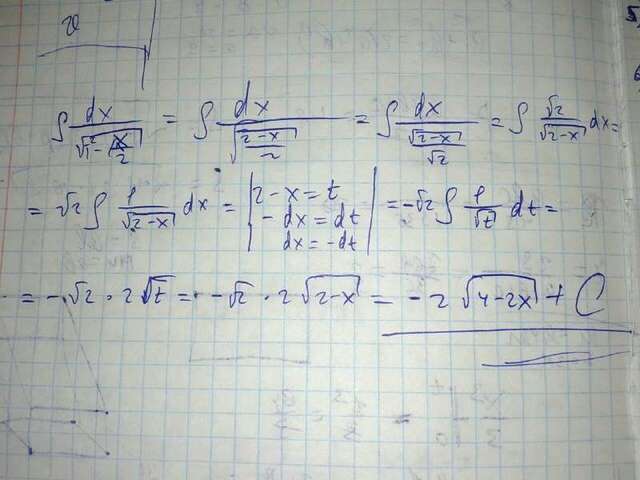 ∫ dx/√(1² - x/2) = ∫ dx/√((2-x)/2) = ∫ dx/(√(2-x)/√2) = ∫ √2/√(2-x) dx =
= √2 ∫ 1/√(2-x) dx = | 2-x=t
-dx=dt
dx=-dt | = -√2 ∫ 1/√t dt =
= -√2 · 2√t = -√2 · 2√(2-x) = -2√(4-2x) + C